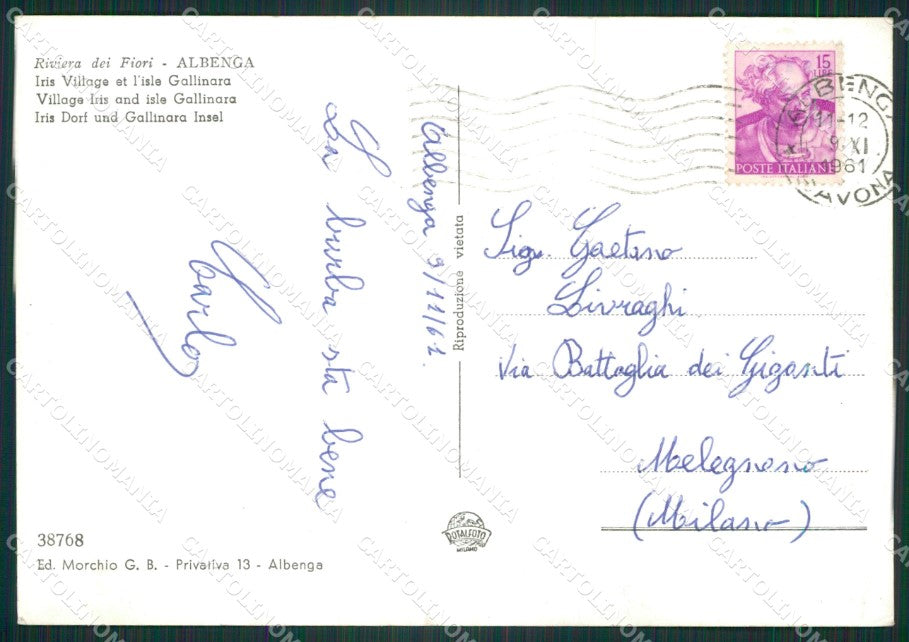 Riviera dei Fiori - ALBENGA
Iris Village et l'isle Gallinara
Village Iris and isle Gallinara
Iris Dorf und Gallinara Insel
Albenga 9/11/61.
La burba sta bene
Carlo
Riproduzione vietata
15
LIRE
POSTE ITALIANE
ALBENGA
11-12
9.XI
1961
SAVONA
Sig. Gaetano
Livraghi
Via Battaglia dei Giganti
Melegnano
(Milano)
ROTALFOTO
MILANO
38768
Ed. Morchio G. B. - Privativa 13 - Albenga
CARTOLINOMANIA